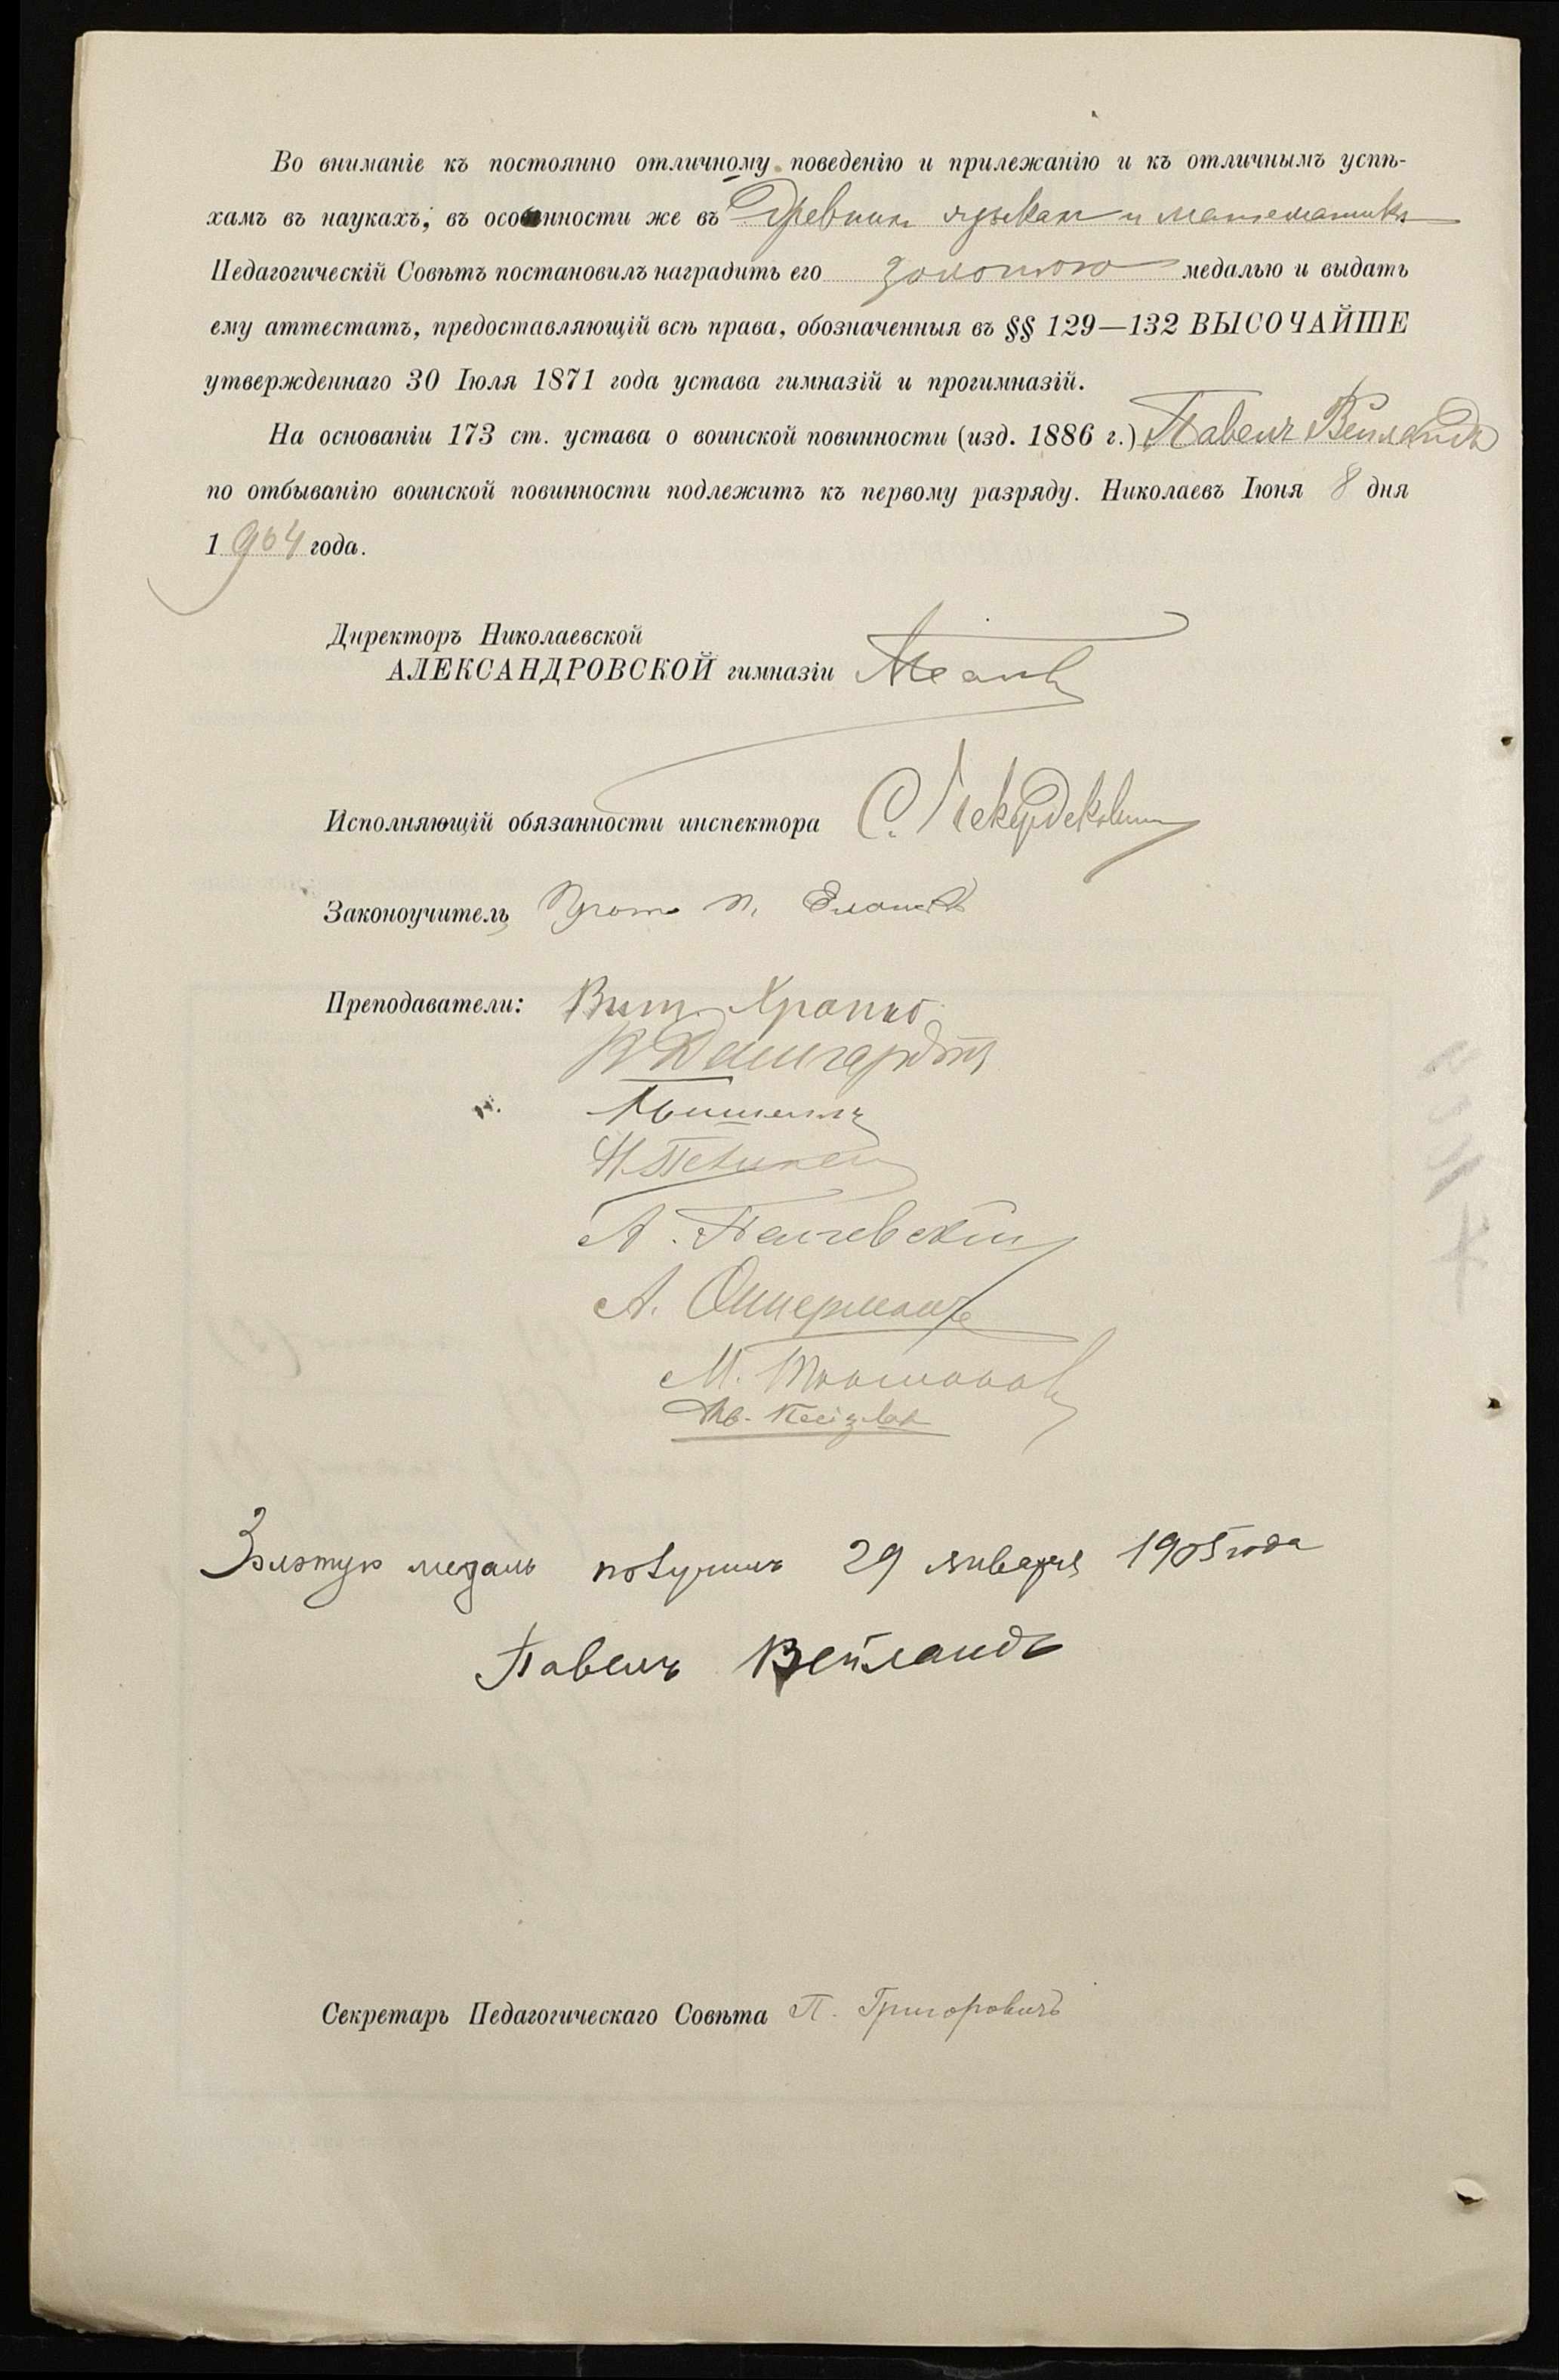 Во вниманіе къ постоянно отличному поведенію и прилежанію и къ отличнымъ успѣ-
хамъ въ наукахъ, въ особенности же въ древнихъ языкахъ и математикѣ
Педагогическій Совѣтъ постановилъ наградить его золотою медалью и выдать
ему аттестатъ, предоставляющій всѣ права, обозначенныя въ §§ 129—132 ВЫСОЧАЙШЕ
утвержденнаго 30 Іюля 1871 года устава гимназій и прогимназій.
На основаніи 173 ст. устава о воинской повинности (изд. 1886 г.) Павелъ Вейландъ
по отбыванію воинской повинности подлежитъ къ первому разряду. Николаевъ Іюня 8 дня
1904 года.
Директоръ Николаевской
АЛЕКСАНДРОВСКОЙ гимназіи
Исполняющій обязанности инспектора С.
Законоучитель
Преподаватели:
А.
А.
М.
Золотую медаль получилъ 29 января 1905 года
Павелъ Вейландъ
Секретарь Педагогическаго Совѣта П. Григоровичъ